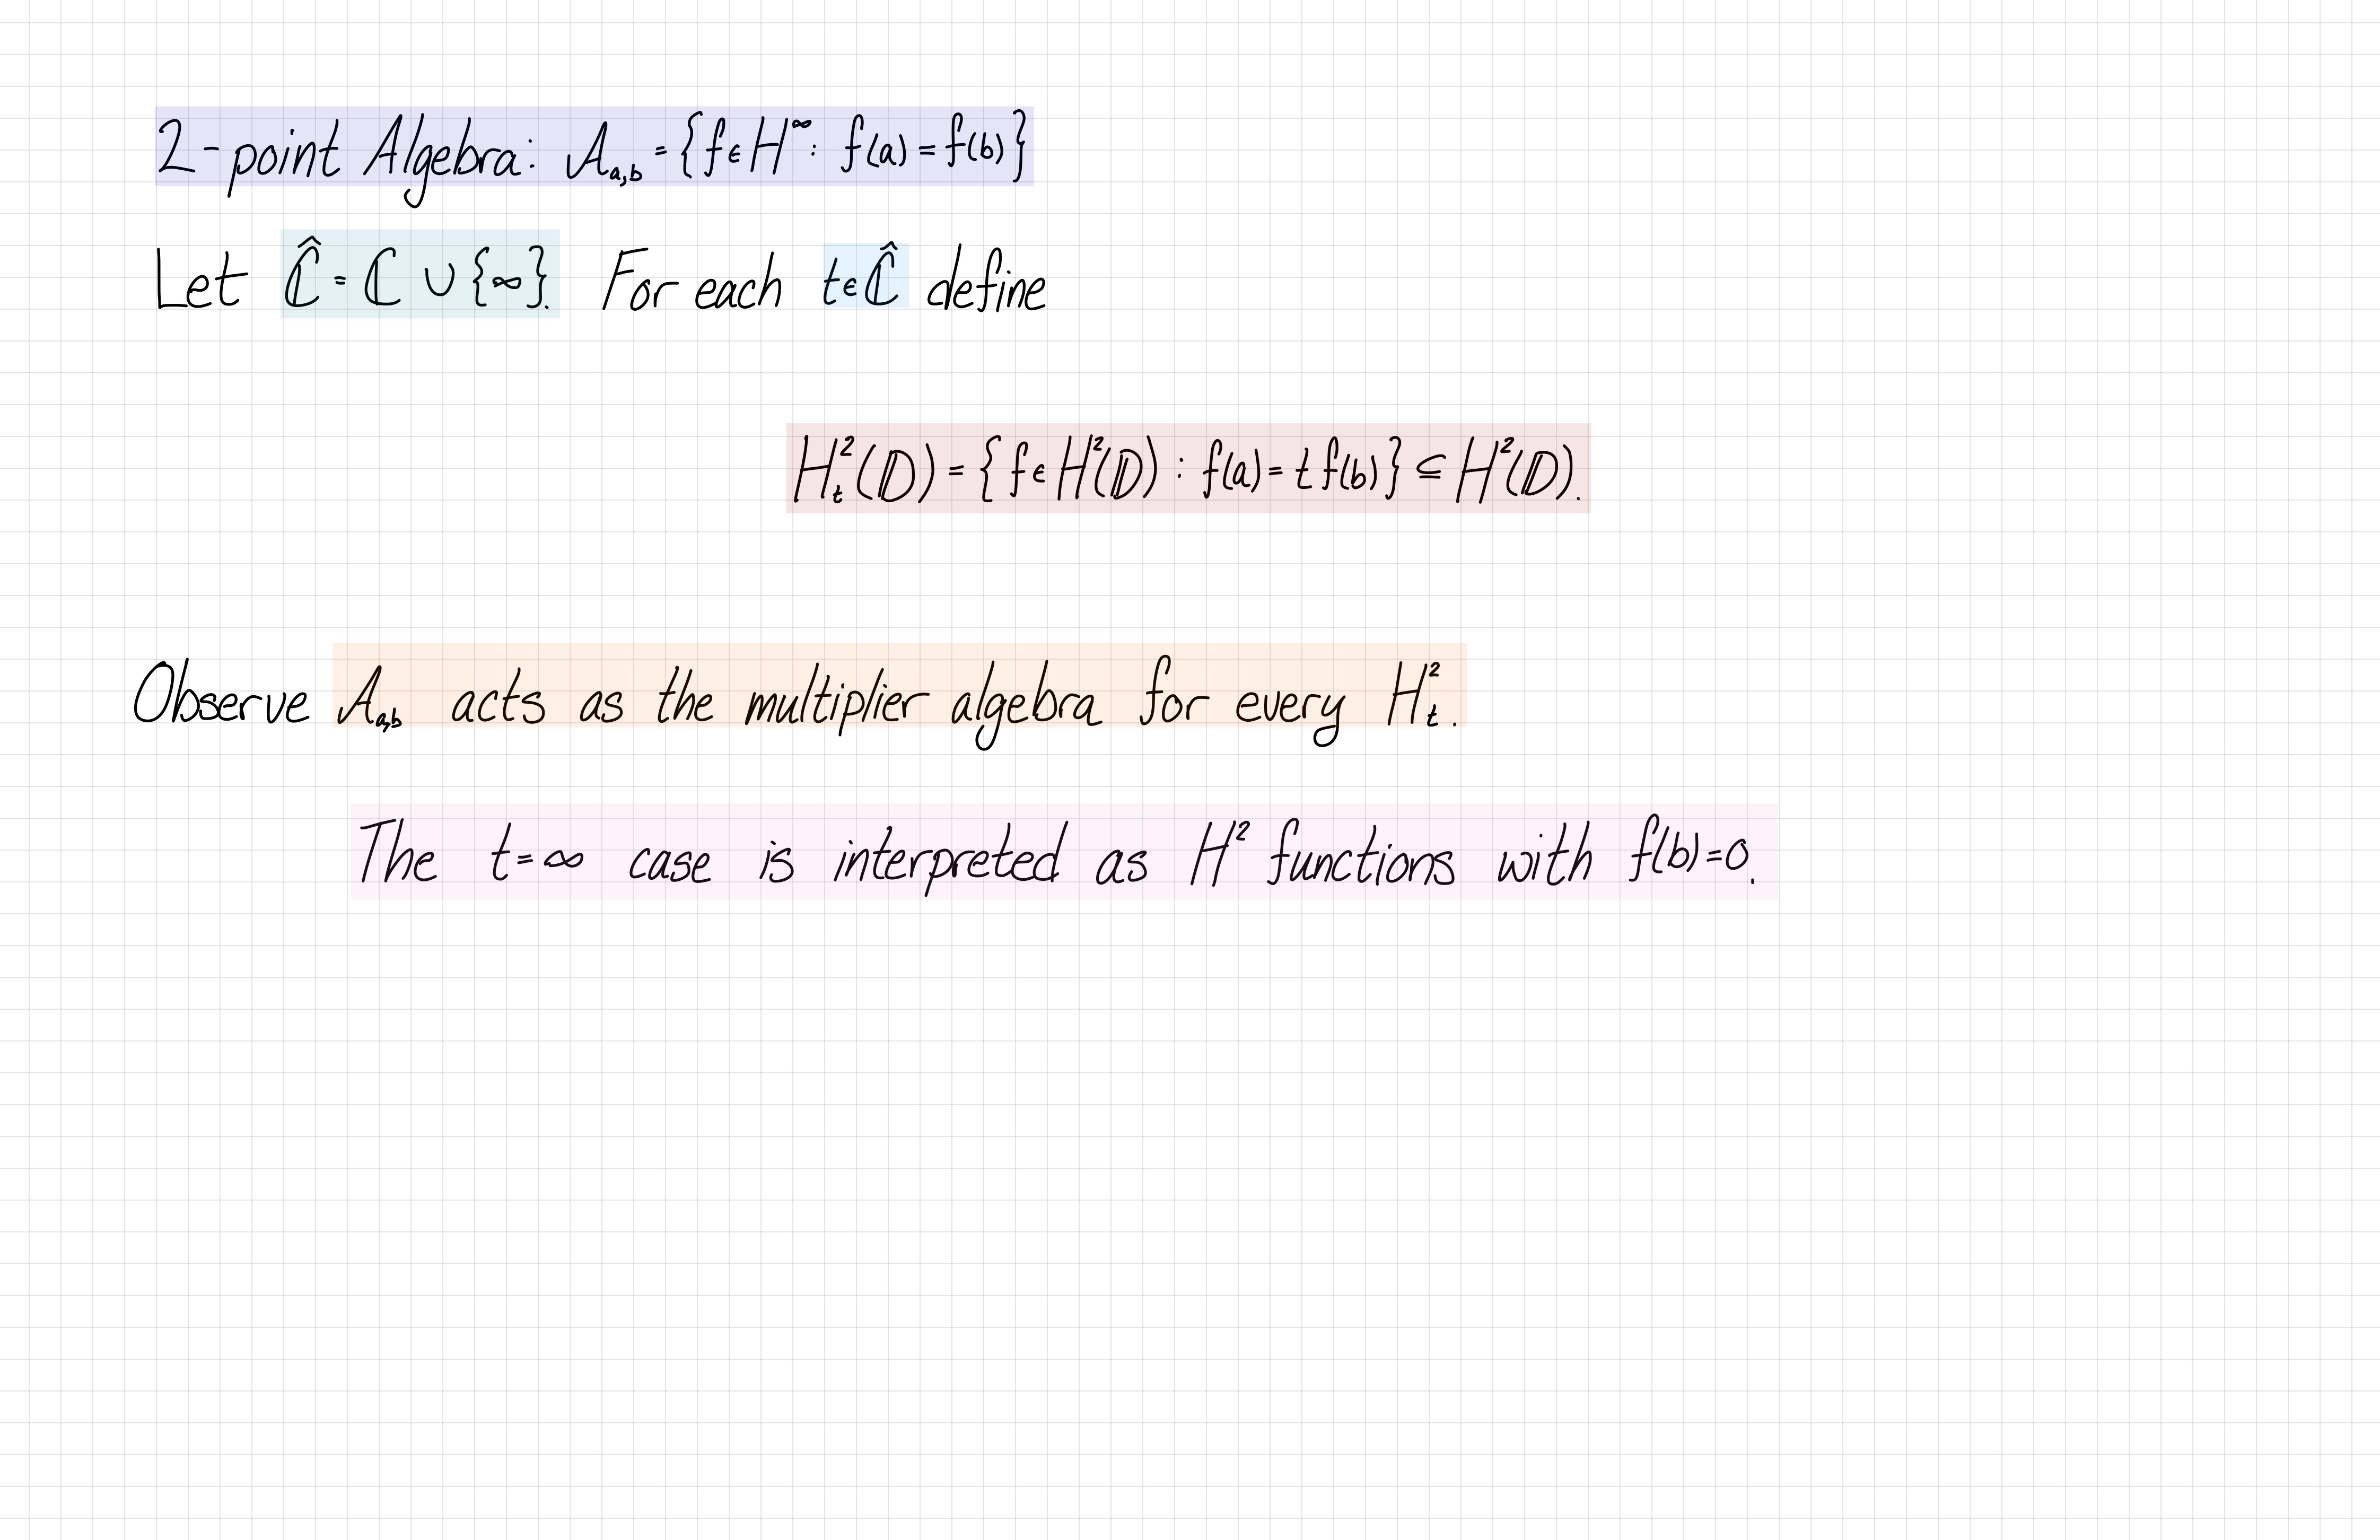 2-point Algebra: A_{a,b} = {f ∈ H^∞ : f(a) = f(b)}
Let Ĉ = ℂ ∪ {∞}. For each t ∈ Ĉ define
H²_t(𝔻) = {f ∈ H²(𝔻) : f(a) = t f(b)} ⊆ H²(𝔻).
Observe A_{a,b} acts as the multiplier algebra for every H²_t.
The t = ∞ case is interpreted as H² functions with f(b) = 0.